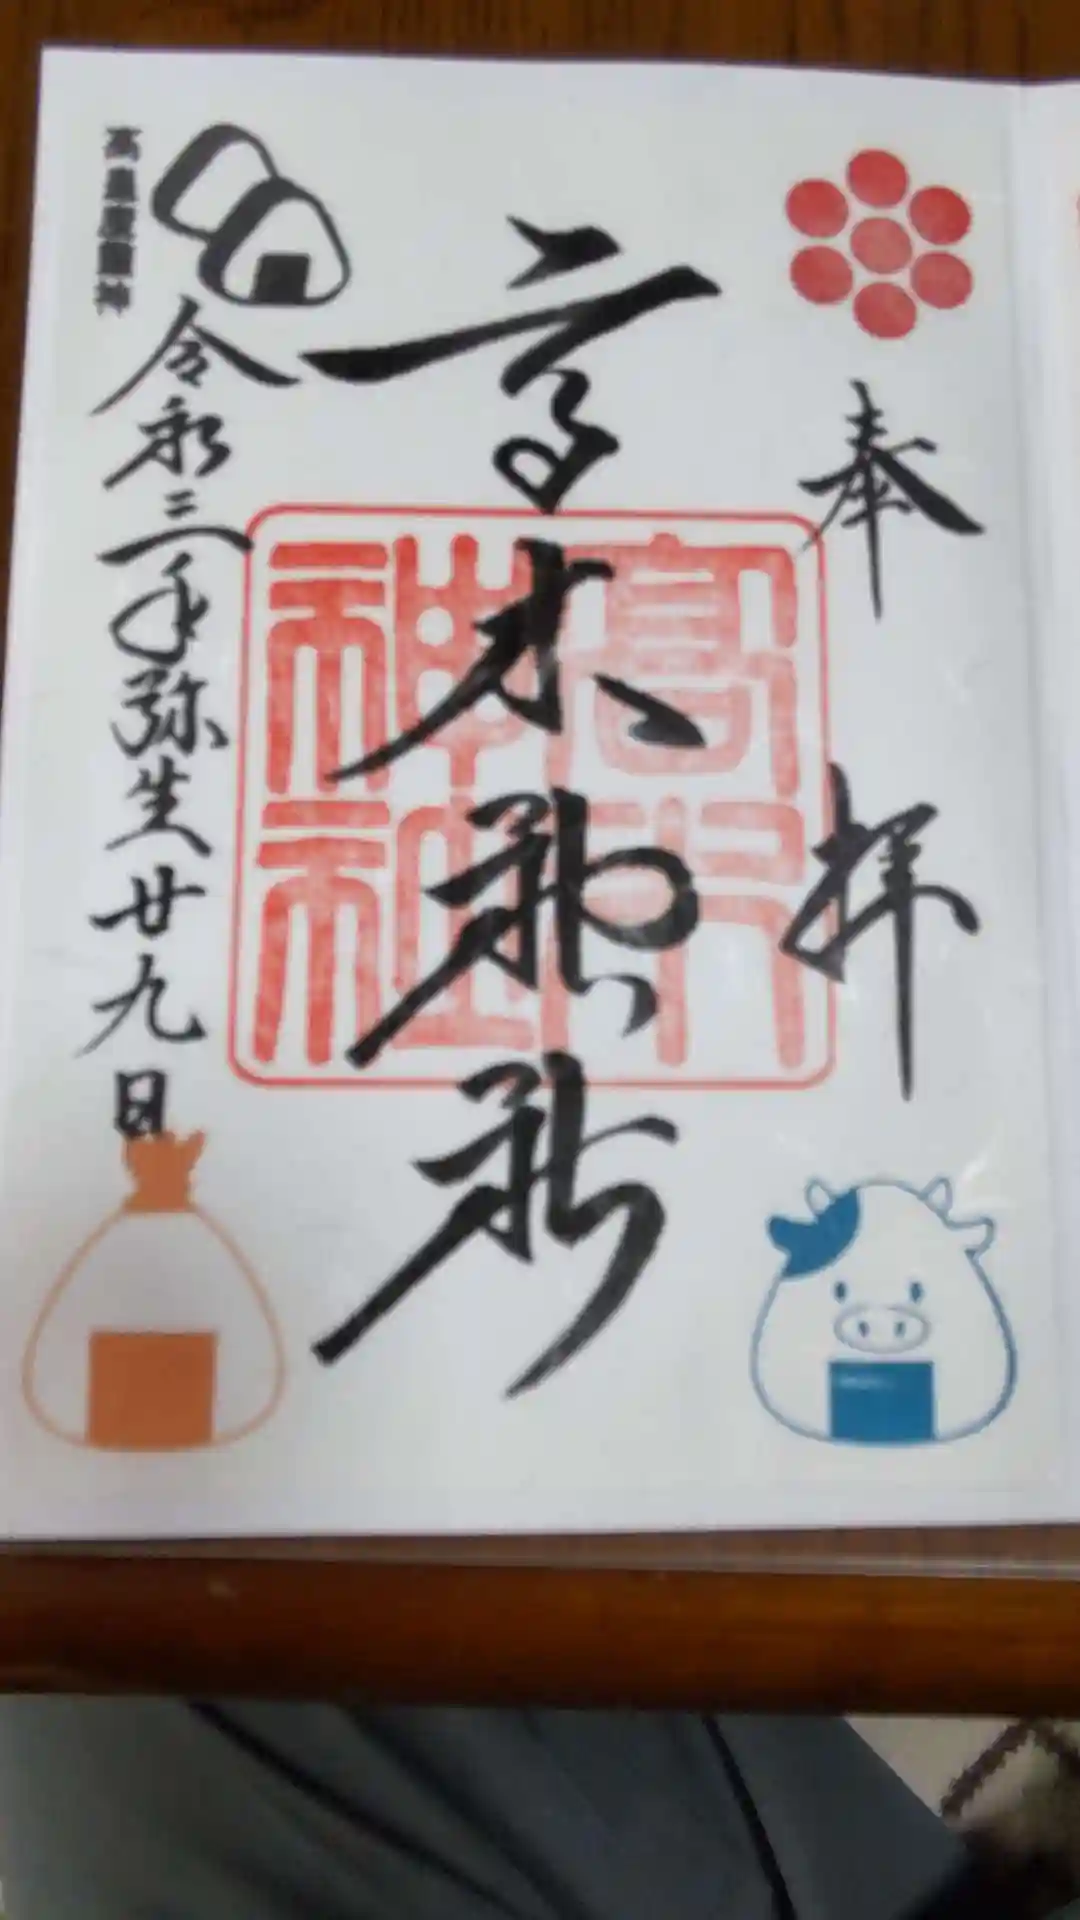 奉拝
高木神社
高木神社
令和三年弥生廿九日